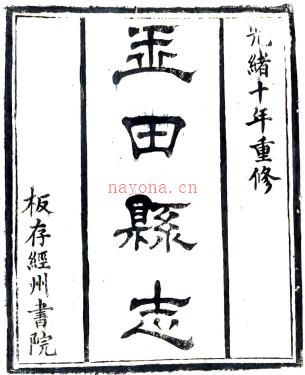 光緒十年重修
玉田縣志
nayona.cn
板存經州書院